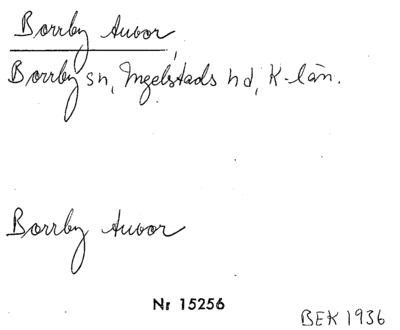 Borrby Auvor,
Borrby sn, Ingelstads hd, K-län.
Borrby Auvor
Nr 15256
BEK 1936